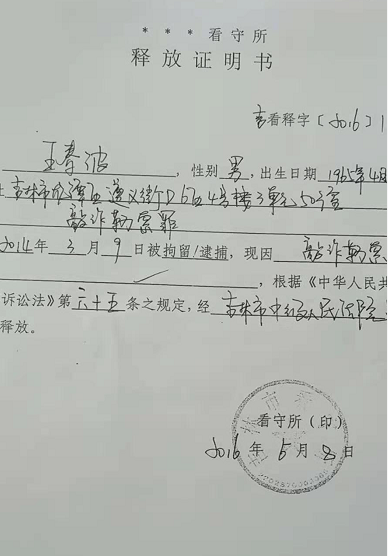 * * * 看守所
释放证明书
吉看释字〔2016〕1
王春波，性别男，出生日期1965年4月
吉林市龙潭区遵义街D6区4号楼3单元50室
敲诈勒索罪
2014年3月9日被拘留/逮捕，现因敲诈勒索
，根据《中华人民共
诉讼法》第六十五条之规定，经吉林市中级人民法院
释放。
看守所（印）
2016年5月8日